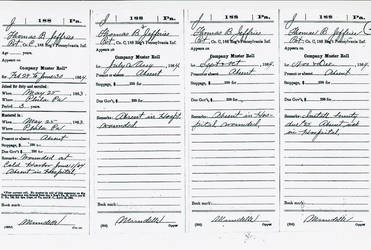 J 188 Pa.
Thomas B Jeffries
Pvt, Co. C, 188 Reg't Pennsylvania Inf.
Age years.
Appears on
Company Muster Roll
for Feb 29 to June 30, 1864.
Joined for duty and enrolled:
When May 25, 1863.
Where Phila Pa
Period 3 years.
Mustered in:
When May 25, 1863.
Where Phila Pa
Present or absent Absent
Stoppage, $ 100 for
Due Gov't, $ 100 for
Remarks: Wounded at
Cold Harbor June 1/64
Absent in Hospital
Book mark:
Copyist.
J 188 Pa.
Thomas B Jeffries
Pvt, Co. C, 188 Reg't Pennsylvania Inf.
Appears on
Company Muster Roll
for July & Aug, 1864.
Present or absent Absent
Stoppage, $ 100 for
Due Gov't, $ 100 for
Remarks: Absent in Hospit
wounded
Book mark:
Copyist.
J 188 Pa.
Thomas B Jeffries
Pvt, Co. C, 188 Reg't Pennsylvania Inf.
Appears on
Company Muster Roll
for Sept & Oct, 1864.
Present or absent Absent
Stoppage, $ 100 for
Due Gov't, $ 100 for
Remarks: Absent in Hos-
pital wounded,
Book mark:
Copyist.
J 188 Pa.
Thomas B Jeffries
Pvt, Co. C, 188 Reg't Pennsylvania Inf.
Appears on
Company Muster Roll
for Nov & Dec, 1864.
Present or absent Absent
Stoppage, $ 100 for
Due Gov't, $ 100 for
Remarks:
Absent sick
in Hospital,
Book mark:
Copyist.